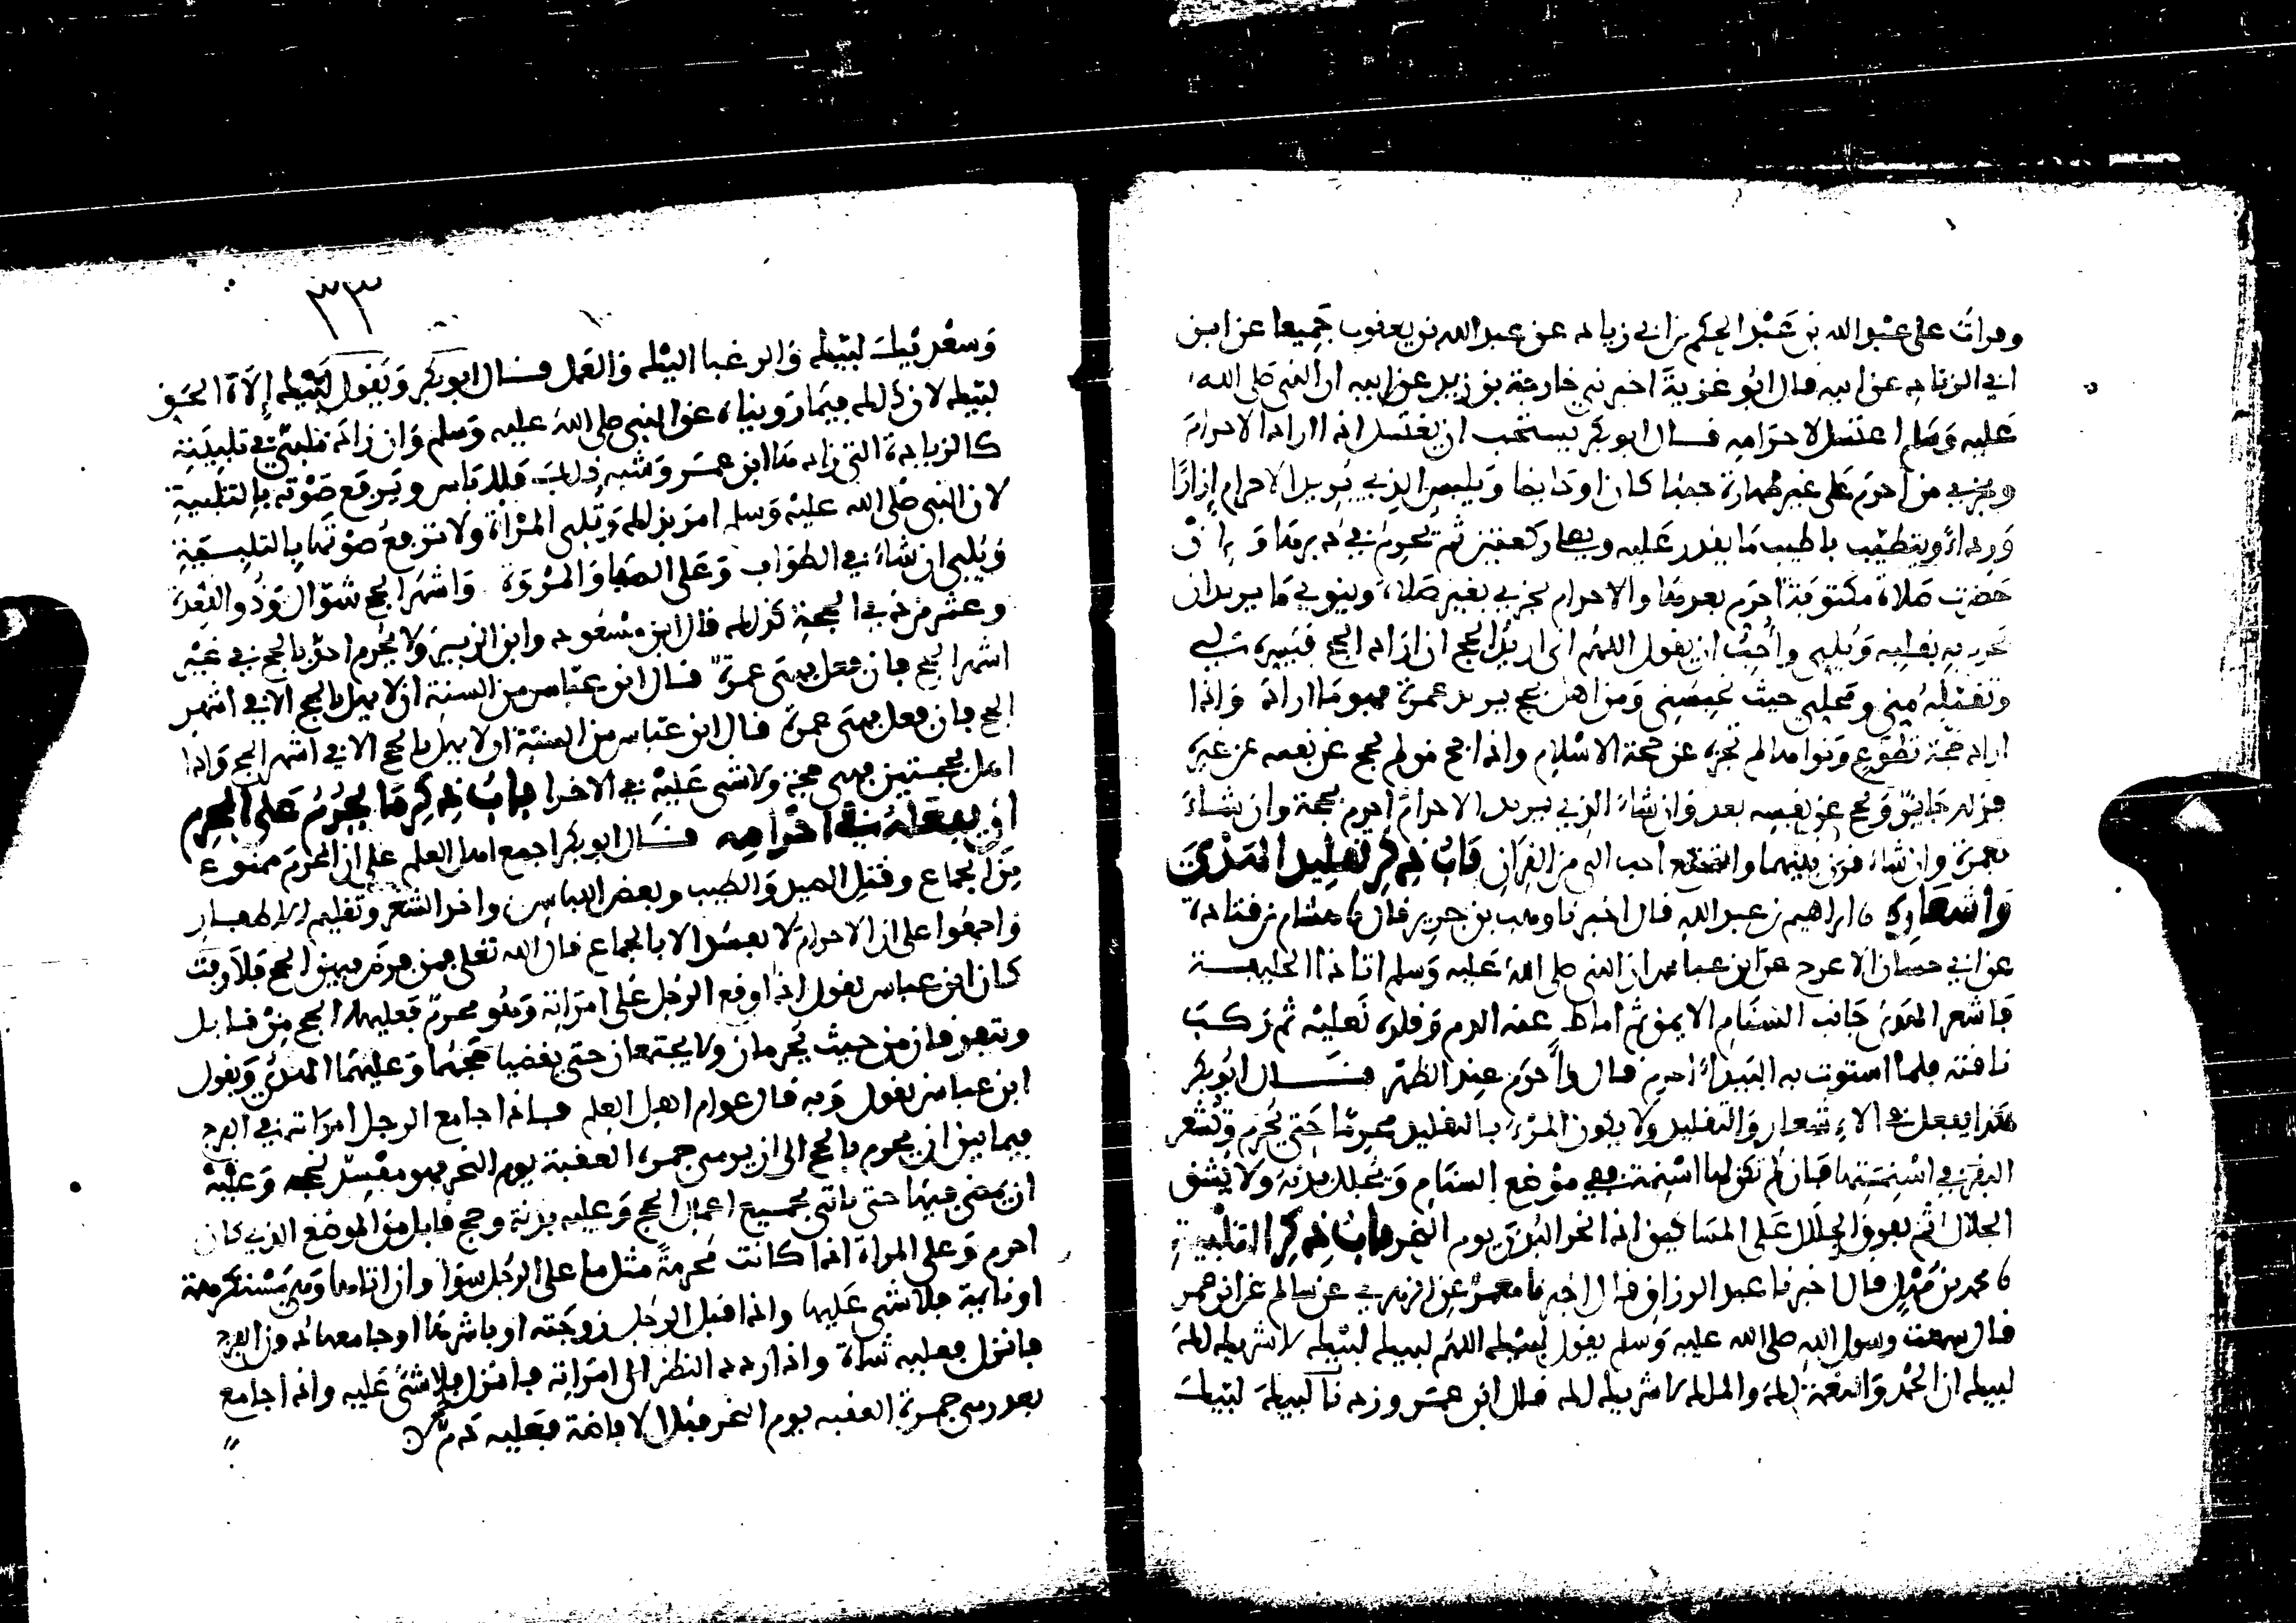 وقرأت على عبد الله بن عبد الحكم بن أبي زياد عن عبد الله بن يعقوب جميعا عن ابن
أبي الزناد عن أبيه قال أبو غزية أخبرني خارجة بن زيد عن أبيه أن النبي صلى الله
عليه وسلم اغتسل لإحرامه قال أبو بكر يستحب أن يغتسل إذا أراد الإحرام
ويجزي من أحرم على غير طهارة جنبا كان أو حائضا ويلبس الذي يريد الإحرام إزارا
ورداء ويتطيب بأطيب ما يقدر عليه ويصلي ركعتين ثم يحرم في دبرها وإن
حضرت صلاة مكتوبة أحرم بعدها والإحرام يجزي بغير صلاة وينوي ما يريد أن
يحرم به بقلبه ويلبي وأحب أن يقول اللهم إني أريد الحج إن أراد الحج فيسره لي
وتقبله مني ومحلي حيث تحبسني ومن أهل بحج يريد عمرة فهو ما أراد وإذا
أراد حجة تطوع ونواها لم تجزه عن حجة الإسلام وإذا حج من لم يحج عن نفسه عن غيره
فذلك جائز ويحج عن نفسه بعد وإن شاء الذي يريد الإحرام أحرم بحجة وإن شاء
بعمرة وإن شاء قرن بينهما والتمتع أحب إلي من القران باب ذكر تقليد الهدي
وإشعاره نا إبراهيم بن عبد الله قال أخبرنا وهب بن جرير قال نا هشام عن قتادة
عن أبي حسان الأعرج عن ابن عباس أن النبي صلى الله عليه وسلم أتا ذا الحليفة
فأشعر الهدي جانب السنام الأيمن ثم أماط عنه الدم وقلده نعليه ثم ركب
ناقته فلما استوت به البيداء أحرم قال وأحرم عند الظهر قال أبو بكر
هكذا يفعل في الإشعار والتقليد ولا يكون المرء بالتقليد محرما حتى يحرم وتشعر
البقر في أسنمتها فإن لم تكن لها أسنمة ففي موضع السنام ويجلل بدنه ولا يشق
الجلال ثم يفرق الجلال على المساكين إذا نحر البدن يوم النحر باب ذكر التلبية
نا محمد بن مهل قال أخبرنا عبد الرزاق قال أخبرنا معمر عن الزهري عن سالم عن ابن عمر
قال سمعت رسول الله صلى الله عليه وسلم يقول لبيك اللهم لبيك لبيك لا شريك لك
لبيك إن الحمد والنعمة لك والملك لا شريك لك قال ابن عمر وزدنا لبيك لبيك
٣٣
وسعديك لبيك والرغبا إليك والعمل قال أبو بكر ويقول لبيك إله الحق
لبيك لأن ذلك فيما روينا عن النبي صلى الله عليه وسلم وإن زاد ملبي في تلبيته
كالزيادة التي زادها ابن عمر وشبه ذلك فلا بأس ويرفع صوته بالتلبية
لأن النبي صلى الله عليه وسلم أمر بذلك وتلبي المرأة ولا ترفع صوتها بالتلبية
ويلبي إن شاء في الطواف وعلى الصفا والمروة وأشهر الحج شوال وذو القعدة
وعشر من ذي الحجة كذلك قال ابن مسعود وابن الزبير ولا يحرم أحد بالحج في غير
أشهر الحج فإن فعل فهي عمرة قال ابن عباس من السنة أن لا يهل بالحج إلا في أشهر
الحج فإن فعل فهي عمرة قال ابن عباس من السنة أن لا يهل بالحج إلا في أشهر الحج وإذا
أهل بحجتين فهي حجة ولا شي عليه في الأخرا باب ذكر ما يحرم على المحرم
أن يفعله في إحرامه قال أبو بكر أجمع أهل العلم على أن المحرم ممنوع
من الجماع وقتل الصيد والطيب وبعض اللباس وأخذ الشعر وتقليم الأظفار
وأجمعوا على أن الإحرام لا يفسد إلا بالجماع قال الله تعلى فمن فرض فيهن الحج فلا رفث
كان ابن عباس يقول إذا وقع الرجل على امرأته وهو محرم فعليهما الحج من قابل
ويتفرقان من حيث يحرمان ولا يجتمعان حتى يقضيا حجهما وعليهما الهدي وبقول
ابن عباس نقول وبه قال عوام أهل العلم فإذا جامع الرجل امرأته في الفرج
فيما بين أن يحرم بالحج إلى أن يرمي جمرة العقبة يوم النحر فهو مفسد لحجه وعليه
أن يمضي فيها حتى يأتي بجميع أعمال الحج وعليه بدنة وحج قابل من الموضع الذي كان
أحرم وعلى المرأة إذا كانت محرمة مثل ما على الرجل سوا وإن أتاها وهي مستكرهة
أو نائمة فلا شي عليها وإذا قبل الرجل زوجته أو باشرها أو جامعها دون الفرج
فأنزل فعليه شاة وإذا ردد النظر إلى امرأته فأنزل فلا شي عليه وإذا جامع
بعد رمي جمرة العقبة يوم النحر قبل الإفاضة فعليه دم